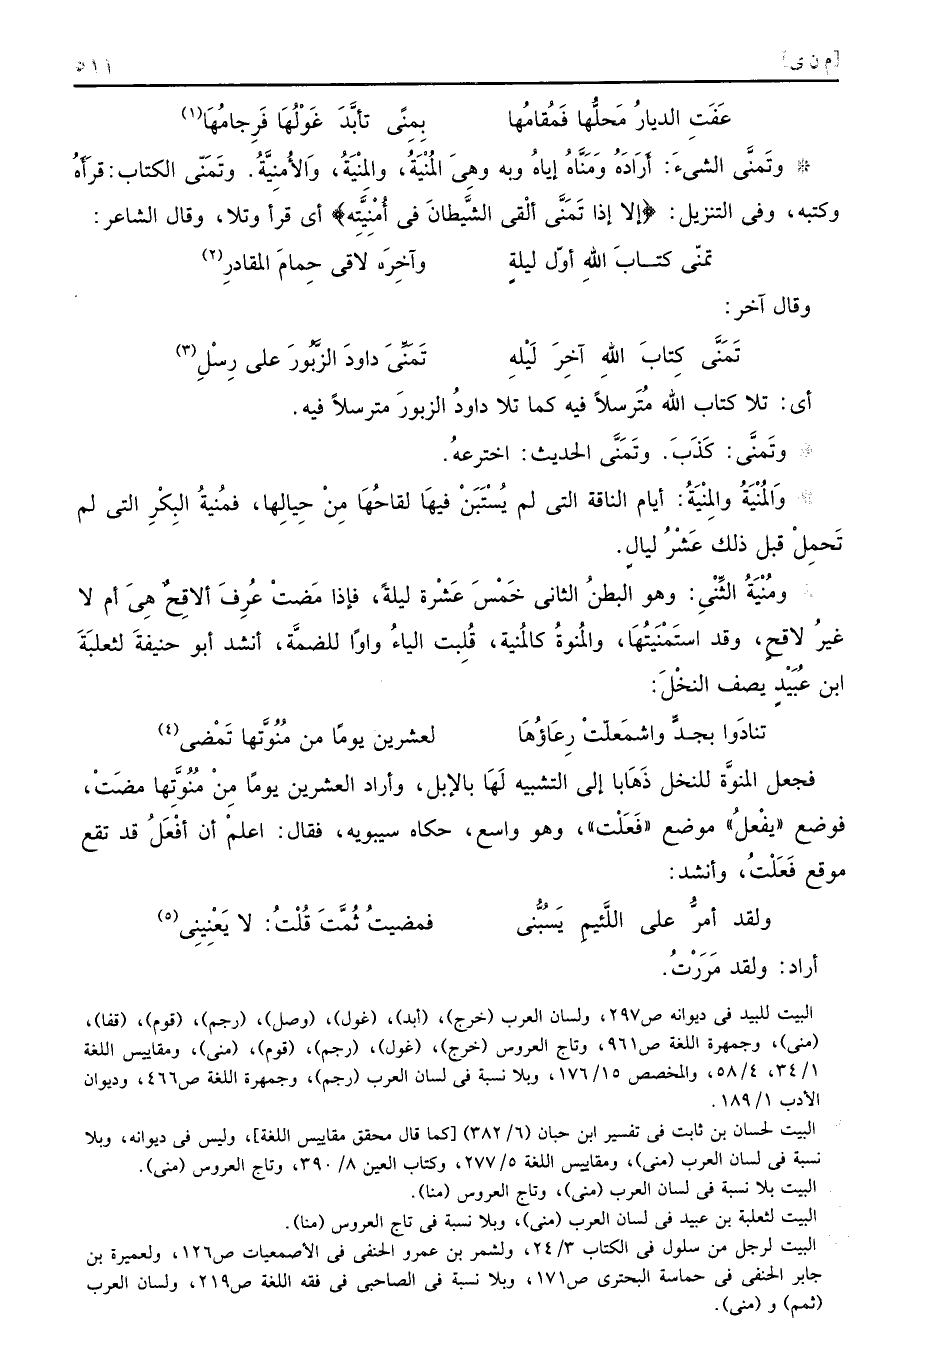 [م ن ى] ٥١١
عَفَتِ الديارُ مَحلُّها فَمُقامُها بِمِنًى تأبَّدَ غَوْلُهَا فَرِجامُهَا(١)
* وتَمنَّى الشىءَ: أرَادَهُ وَمَنَّاهُ إياهُ وبه وهىَ المُنْيَةُ، والمِنْيَةُ، وَالأُمنِيَّةُ. وتَمَنّى الكتابَ: قرأهُ
وكتبه، وفى التنزيل: ﴿إلا إذا تَمَنَّى ألْقى الشَّيطانَ فى أُمْنِيَّته﴾ أى قرأ وتلا، وقال الشاعر:
تمنّى كتــابَ اللهِ أوّل ليلةٍ وآخِرَه لاقى حِمامَ المقادرِ(٢)
وقال آخر:
تَمَنَّى كِتابَ اللهِ آخِرَ لَيْلِهِ تَمَنِّىَ داودَ الزَّبُورَ على رِسْلِ(٣)
أى: تلا كتاب الله مُتَرسلاً فيه كما تلا داودُ الزبورَ مترسلاً فيه.
* وتَمنَّى: كَذَبَ. وتَمَنَّى الحديث: اخترعهُ.
* وَالمُنْيَةُ والمِنْيَةُ: أيام الناقة التى لم يُسْتَبَنْ فيهَا لقاحُهَا مِنْ حِيالِها، فمُنيةُ البِكْرِ التى لم
تَحمِلْ قبل ذلك عَشْرُ ليالٍ.
* ومُنْيَةُ الثِّنْىِ: وهو البطنُ الثانى خَمْسَ عَشْرة ليلةً، فإذا مَضتْ عُرِفَ ألاقِحٌ هىَ أم لا
غيرُ لاقحٍ، وقد استَمْنَيْتُهَا، والمُنوةُ كالمُنية، قُلِبت الياءُ واوًا للضمَّة، أنشد أبو حنيفة لثعلبَةَ
ابن عُبَيْدٍ يصف النخْلَ:
تنادَوا بجدٍّ واشمَعلّتْ رِعَاؤُهَا لعشرين يومًا من مُنُوَّتها تَمْضى(٤)
فجعل المنوَّة للنخل ذَهَابا إلى التشبيه لَهَا بالإبل، وأراد العشرين يومًا مِنْ مُنُوَّتِها مضَتْ،
فوضع «يفْعلُ» موضع «فَعَلْت»، وهو واسع، حكاه سيبويه، فقال: اعلمْ أن أفْعَلُ قد تقع
موقع فَعَلْتُ، وأنشد:
ولقد أمرُّ على اللَّئيمِ يَسُبُّنى فمضيتُ ثُمَّتَ قُلْتُ: لا يَعْنِينِى(٥)
أراد: ولقد مَرَرْتُ.
البيت للبيد فى ديوانه ص٢٩٧، ولسان العرب (خرج)، (أبد)، (غول)، (وصل)، (رجم)، (قوم)، (قفا)،
(منى)، وجمهرة اللغة ص٩٦١، وتاج العروس (خرج)، (غول)، (رجم)، (قوم)، (منى)، ومقاييس اللغة
١/ ٣٤، ٤/ ٥٨، والمخصص ١٥/ ١٧٦، وبلا نسبة فى لسان العرب (رجم)، وجمهرة اللغة ص٤٦٦، وديوان
الأدب ١/ ١٨٩.
البيت لحسان بن ثابت فى تفسير ابن حبان (٦/ ٣٨٢) [كما قال محقق مقاييس اللغة]، وليس فى ديوانه، وبلا
نسبة فى لسان العرب (منى)، ومقاييس اللغة ٥/ ٢٧٧، وكتاب العين ٨/ ٣٩٠، وتاج العروس (منى).
البيت بلا نسبة فى لسان العرب (منى)، وتاج العروس (منا).
البيت لثعلبة بن عبيد فى لسان العرب (منى)، وبلا نسبة فى تاج العروس (منا).
البيت لرجل من سلول فى الكتاب ٣/ ٢٤، ولشمر بن عمرو الحنفى فى الأصمعيات ص١٢٦، ولعميرة بن
جابر الحنفى فى حماسة البحترى ص١٧١، وبلا نسبة فى الصاحبى فى فقه اللغة ص٢١٩، ولسان العرب
(ثمم) و (منى).